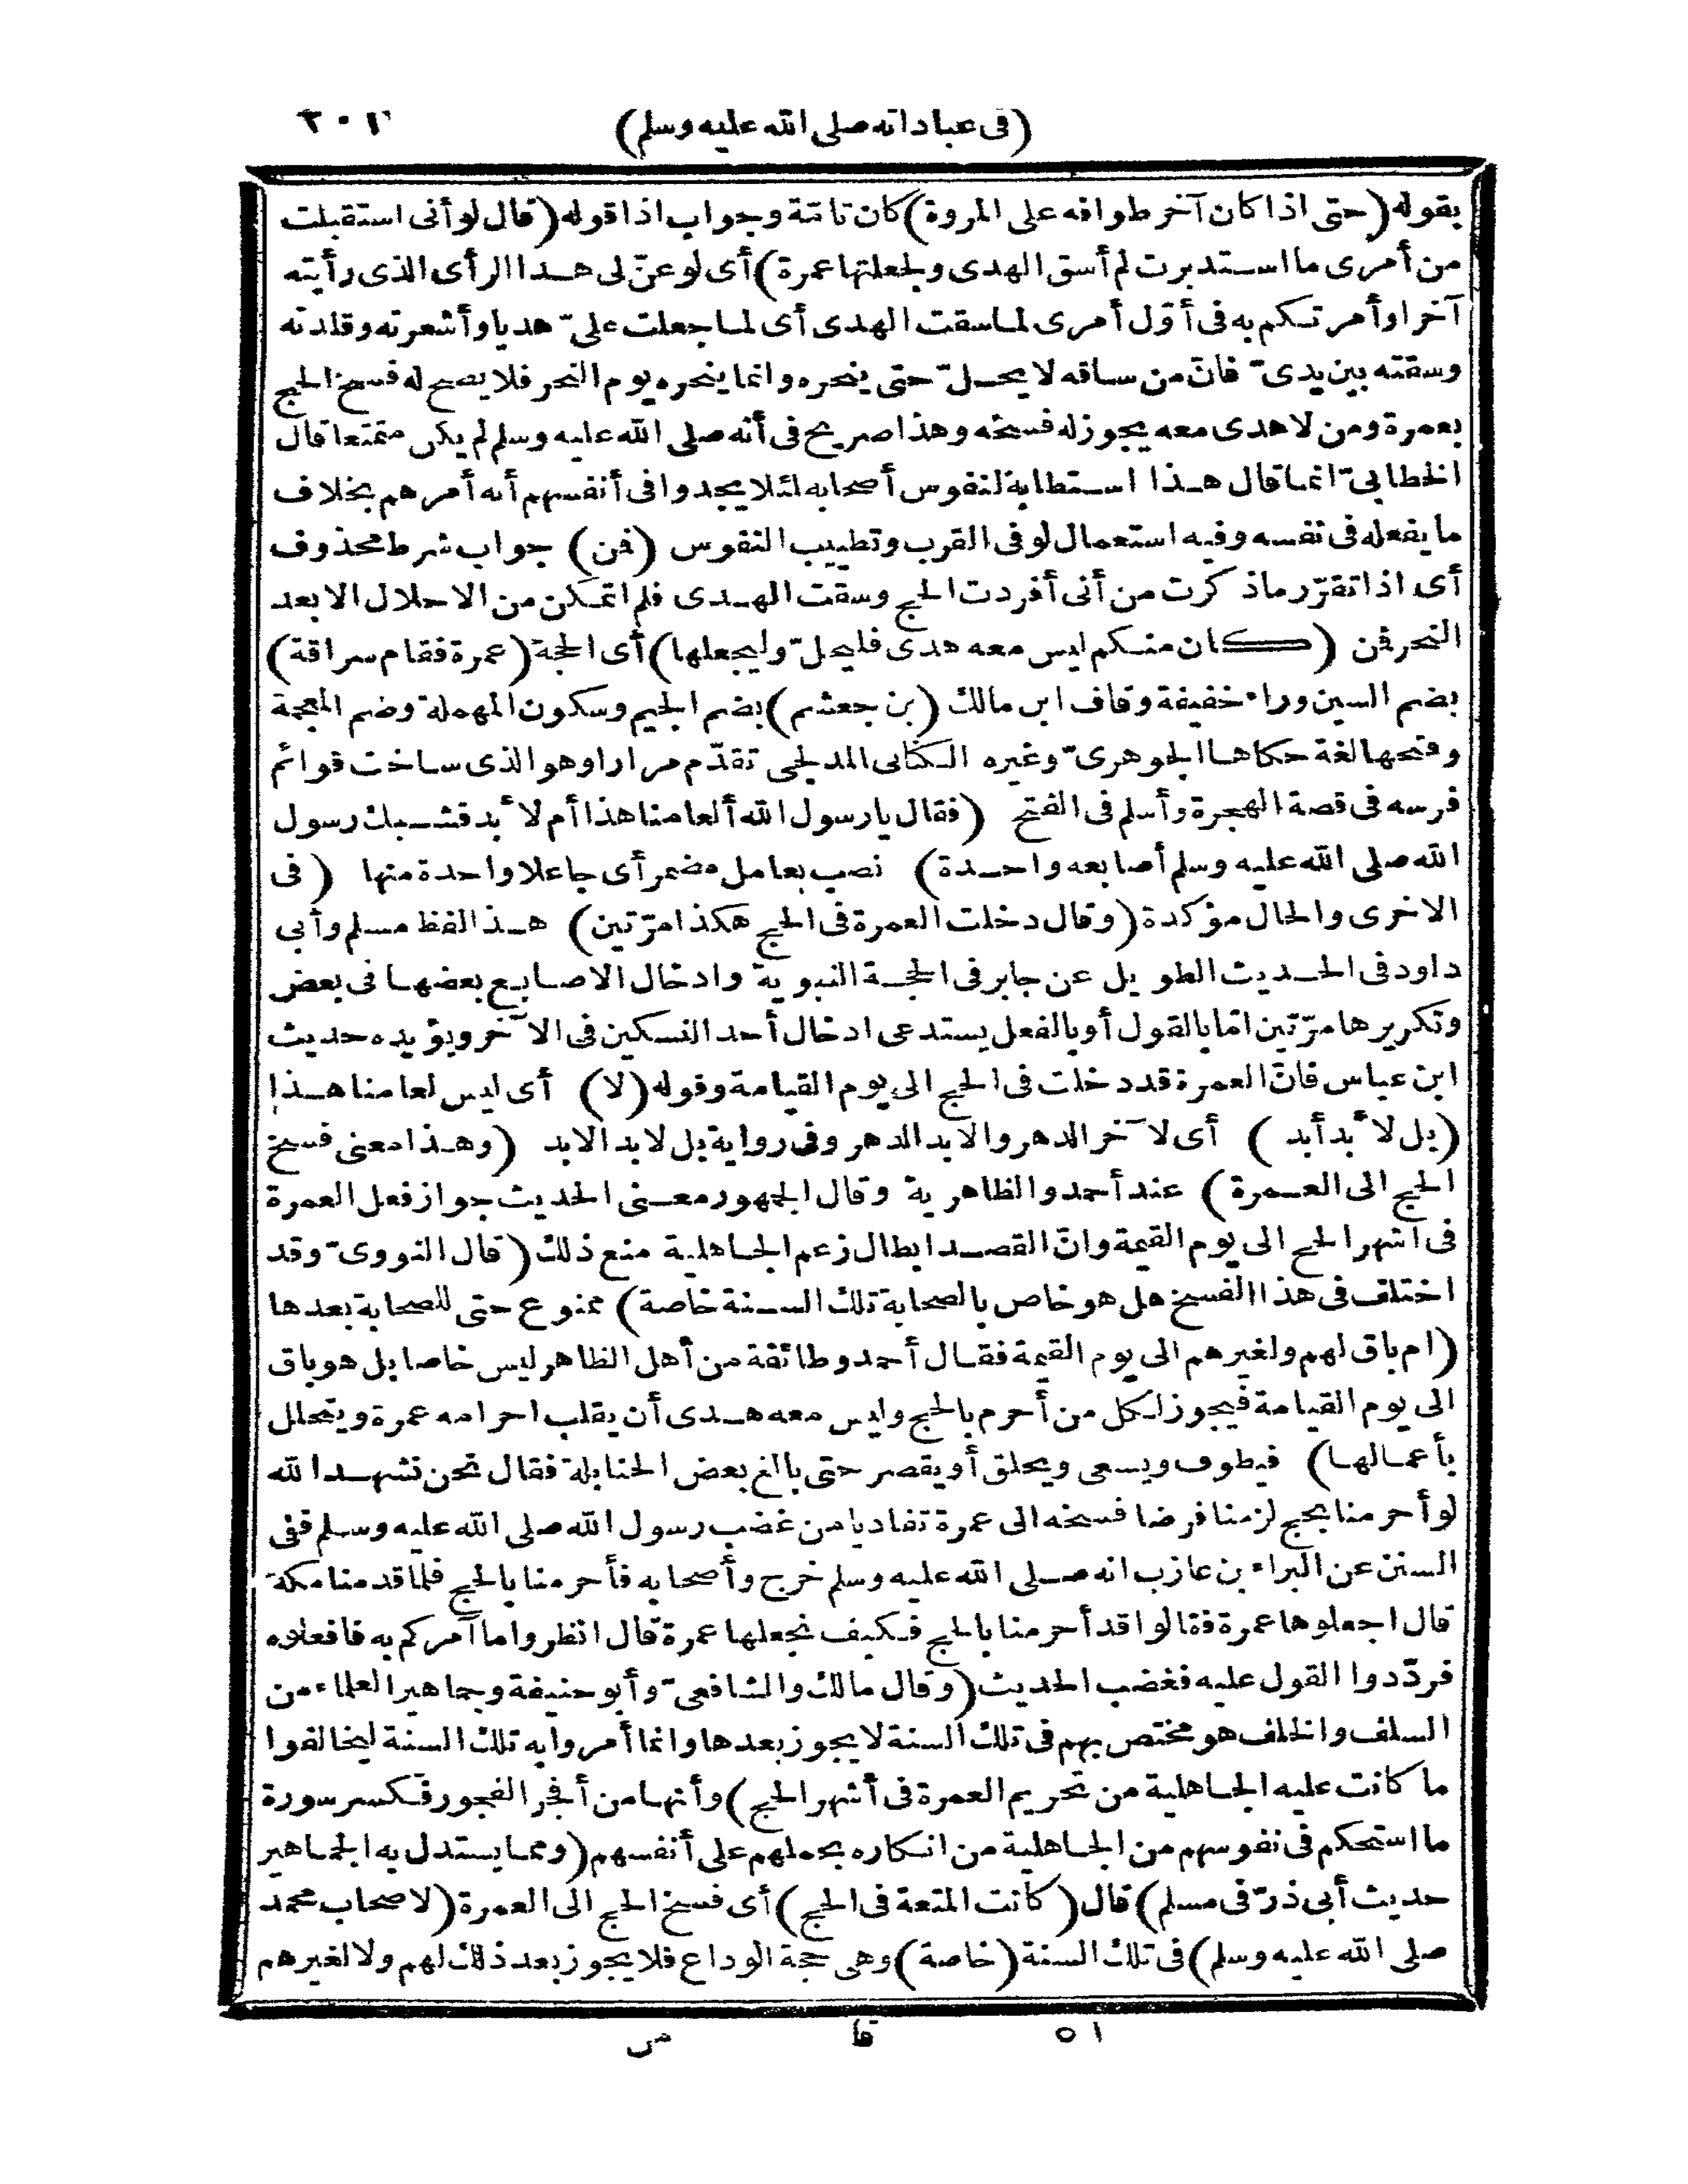 (فى عباداته صلى الله عليه وسلم)
بقوله (حتى اذا كان آخر طوافه على المروة) كان تامّة وجواب اذا قوله (قال لو أنى استقبلت
من أمرى ما استدبرت لم أسق الهدى ولجعلتها عمرة) أى لو عنّ لى هذا الرأى الذى رأيته
آخرا وأمرتكم به فى أوّل أمرى لما سقت الهدى أى لما جعلت علىّ هديا وأشعرته وقلدته
وسقته بين يدىّ فانّ من ساقه لا يحلّ حتى ينحره وانما ينحره يوم النحر فلا يصح له فسخ الحج
بعمرة ومن لا هدى معه يجوز له فسخه وهذا صريح فى أنه صلى الله عليه وسلم لم يكن متمتعا قال
الخطابىّ انما قال هذا استطابة لنفوس أصحابه لئلا يجدوا فى أنفسهم أنه أمرهم بخلاف
ما يفعله فى نفسه وفيه استعمال لو فى القرب وتطييب النفوس (فمن) جواب شرط محذوف
أى اذا تقرّر ما ذكرت من أنى أفردت الحج وسقت الهدى فلم اتمكن من الاحلال الا بعد
النحر فمن (كان منكم ليس معه هدى فليحلّ وليجعلها) أى الحجة (عمرة فقام سراقة)
بضم السين وراء خفيفة وقاف ابن مالك (بن جعشم) بضم الجيم وسكون المهملة وضم المعجمة
وفتحها لغة حكاها الجوهرىّ وغيره الكنانى المدلجى تقدّم مرارا وهو الذى ساخت قوائم
فرسه فى قصة الهجرة وأسلم فى الفتح (فقال يا رسول الله ألعامنا هذا أم لأبد فشبك رسول
الله صلى الله عليه وسلم أصابعه واحدة) نصب بعامل مضمر أى جاعلا واحدة منها (فى
الاخرى والحال مؤكدة (وقال دخلت العمرة فى الحج هكذا مرّتين) هذا لفظ مسلم وأبى
داود فى الحديث الطويل عن جابر فى الحجة النبوية وادخال الاصابع بعضها فى بعض
وتكريرها مرّتين امّا بالقول أو بالفعل يستدعى ادخال أحد النسكين فى الآخر ويؤيده حديث
ابن عباس فانّ العمرة قد دخلت فى الحج الى يوم القيامة وقوله (لا) أى ليس لعامنا هذا
(بل لأبد أبد) أى لآخر الدهر والابد الدهر وفى رواية بل لابد الابد (وهذا معنى فسخ
الحج الى العمرة) عند أحمد والظاهرية وقال الجمهور معنى الحديث جواز فعل العمرة
فى اشهر الحج الى يوم القيمة وانّ القصد ابطال زعم الجاهلية منع ذلك (قال النووىّ وقد
اختلف فى هذا الفسخ هل هو خاص بالصحابة تلك السنة خاصة) ممنوع حتى للصحابة بعدها
(ام باق لهم ولغيرهم الى يوم القيمة فقال أحمد وطائفة من أهل الظاهر ليس خاصا بل هو باق
الى يوم القيامة فيجوز لكل من أحرم بالحج وليس معه هدى أن يقلب احرامه عمرة ويتحلل
بأعمالها) فيطوف ويسعى ويحلق أو يقصر حتى بالغ بعض الحنابلة فقال نحن نشهد الله
لو أحرمنا بحج لزمنا فرضا فسخه الى عمرة تفاديا من غضب رسول الله صلى الله عليه وسلم ففى
السنن عن البراء بن عازب انه صلى الله عليه وسلم خرج وأصحابه فأحرمنا بالحج فلما قدمنا مكة
قال اجعلوها عمرة فقالوا قد أحرمنا بالحج فكيف نجعلها عمرة قال انظروا ما آمركم به فافعلوه
فردّدوا القول عليه فغضب الحديث (وقال مالك والشافعىّ وأبو حنيفة وجماهير العلماء من
السلف والخلف هو مختص بهم فى تلك السنة لا يجوز بعدها وانما أمروا به تلك السنة ليخالفوا
ما كانت عليه الجاهلية من تحريم العمرة فى أشهر الحج) وأنها من أفجر الفجور فكسر سورة
ما استحكم فى نفوسهم من الجاهلية من انكاره بحملهم على أنفسهم (ومما يستدل به الجماهير
حديث أبى ذرّ فى مسلم) قال (كانت المتعة فى الحج) أى فسخ الحج الى العمرة (لاصحاب محمد
صلى الله عليه وسلم) فى تلك السنة (خاصة) وهى حجة الوداع فلا يجوز بعد ذلك لهم ولا لغيرهم
٥١ قا